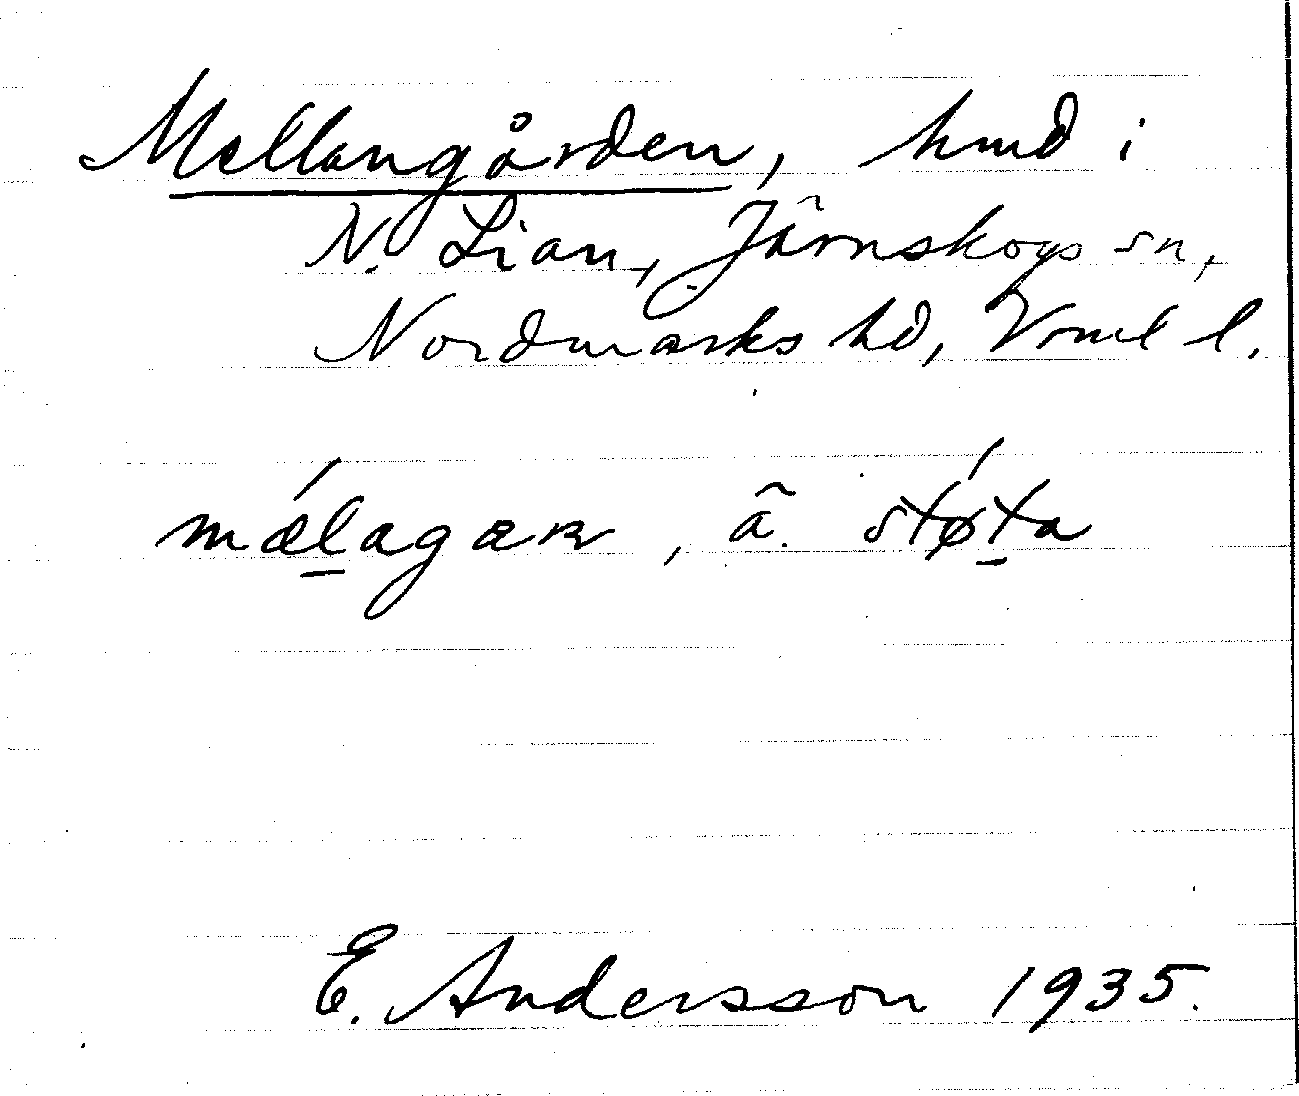 Mellangården, hmd i
N. Lian, Järnskogs sn,
Nordmarks hd, Vrml l.
mǽl̲agaʀ, ã. stǿt̲a
E. Andersson 1935.